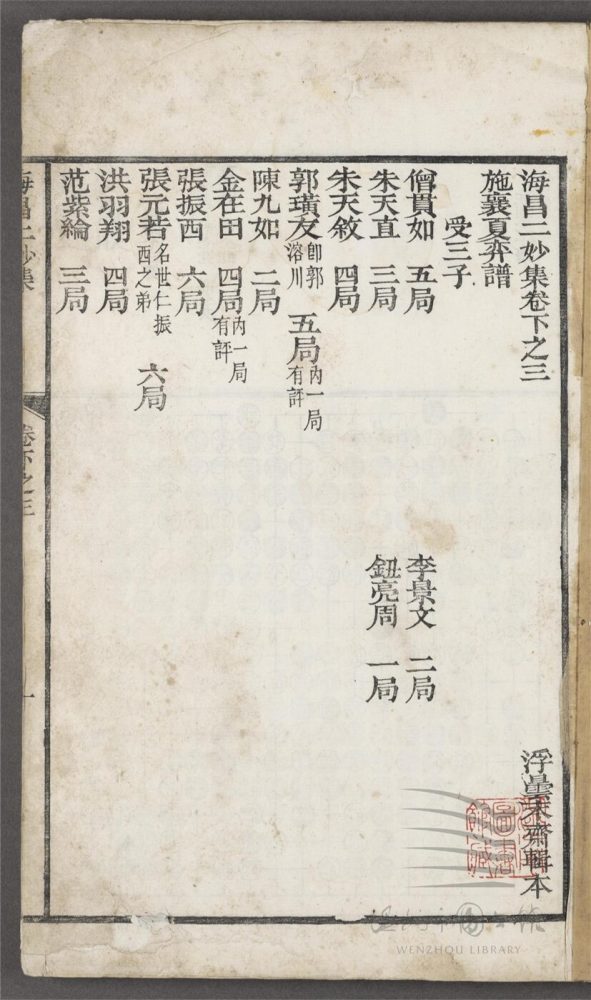 海昌二妙集卷下之三
浮曇末齋輯本
施襄夏弈譜
受三子
僧貫如 五局
李景文 二局
朱天直 三局
鈕亮周 一局
朱天敘 四局
郭璜友 卽郭溶川 五局 內一局有評
陳九如 二局
金在田 四局 內一局有評
張振西 六局
張元若 名世仁振西之弟 六局
洪羽翔 四局
范紫綸 三局
海昌二妙集
卷下之三
一
WENZHOU LIBRARY